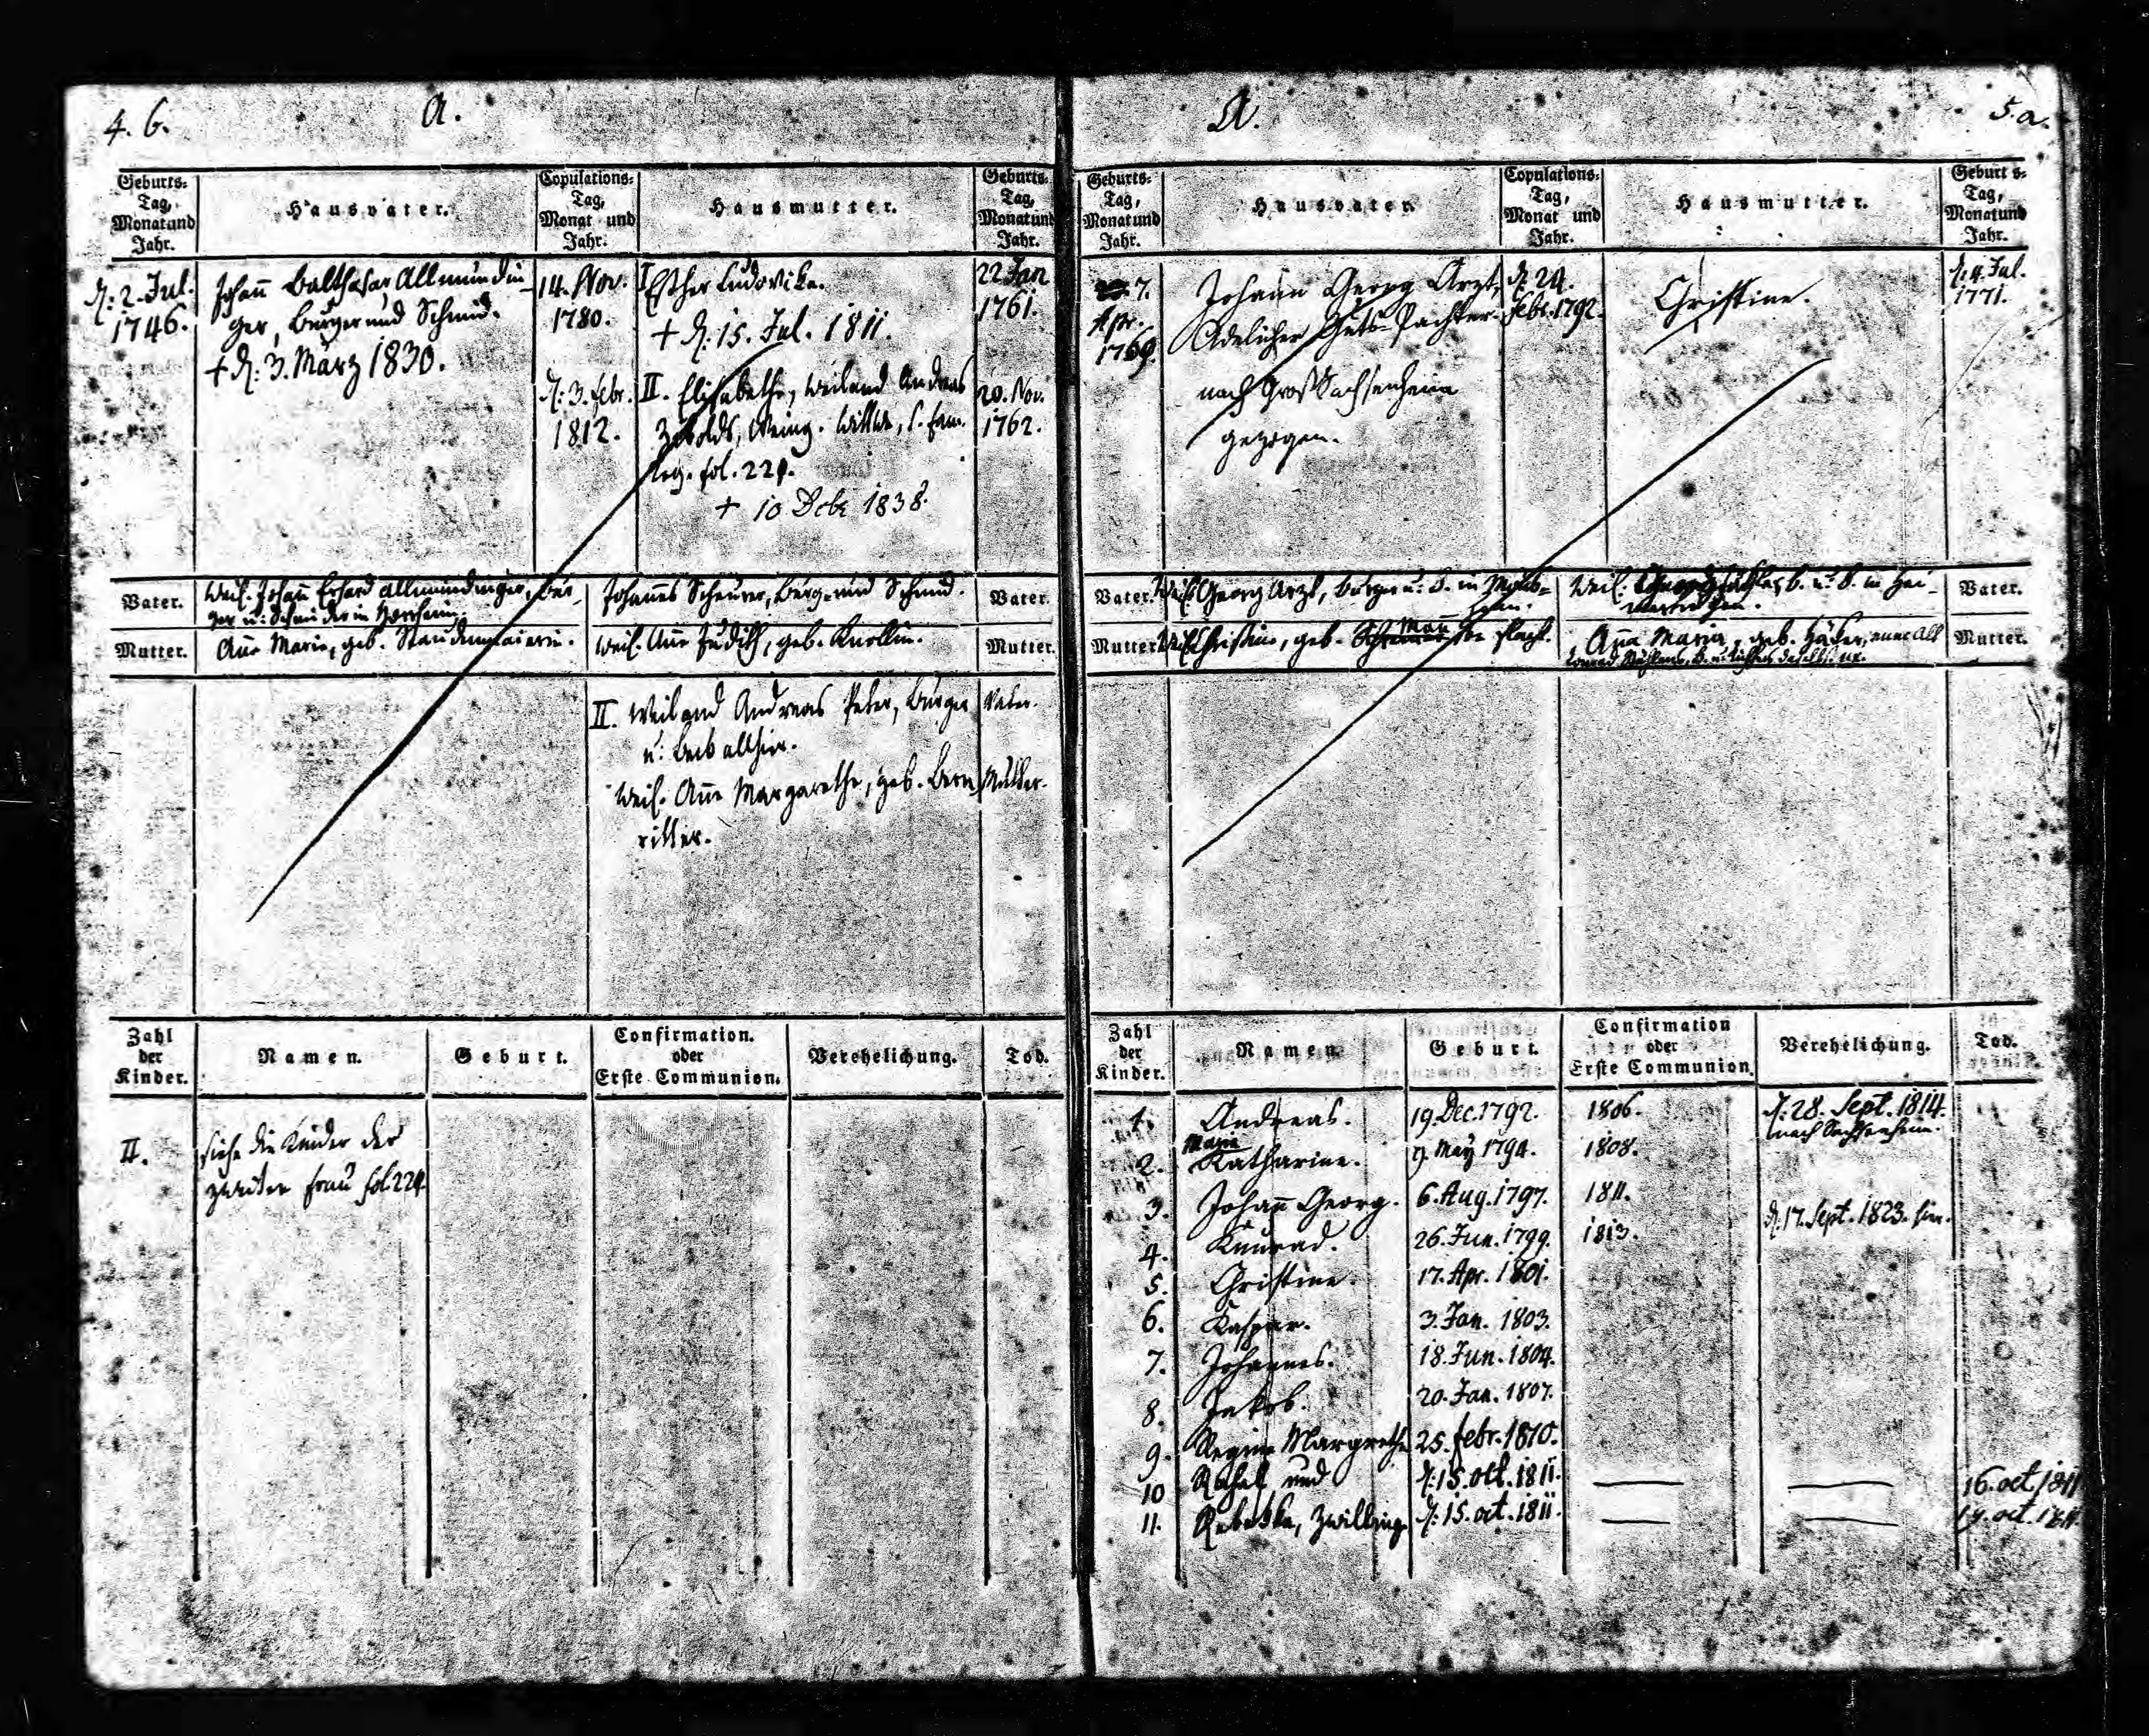 4. b.
A.
Geburts-
Tag,
Monat und
Jahr.
Hausvater.
Copulations-
Tag,
Monat und
Jahr.
Hausmutter.
Geburts-
Tag,
Monat und
Jahr.
d. 2. Jul.
1746.
Johañ Balthasar Allmundin-
ger, Burger und Schmid.
+ d. 3. März 1830.
14. Nov.
1780.
d. 3. Febr.
1812.
I Esther Ludovika.
+ d. 15. Jul. 1811.
II. Elisabetha, weiland Andreas
Wittwe, s. Fam.
Reg. fol. 221.
+ 10 Dcbr 1838.
22 Jan
1761.
20. Nov.
1762.
Vater.
Weil. Johañ Erhard Allmundinger, Bur-
ger u. Schneider in
Johannes Scheurer, Burg. und Schmid.
Vater.
Mutter.
Añe Marie, geb. Staudenmaierin.
Weil. Añe Judith, geb. Knollin.
Mutter.
II. Weiland Andreas Peter, Burger
u. Beck allhier.
Vater.
Weil. Añe Margarethe, geb. Bern
ritter.
Mutter.
Zahl
der
Kinder.
Namen.
Geburt.
Confirmation.
oder
Erste Communion.
Verehelichung.
Tod.
II.
siehe die Kinder der
zweiten Frau fol. 221.
A.
5.a.
Geburts-
Tag,
Monat und
Jahr.
Hausvater.
Copulations-
Tag,
Monat und
Jahr.
Hausmutter.
Geburts-
Tag,
Monat und
Jahr.
7.
Apr.
1769.
Johann Georg Arzt,
Adelicher Guts-Pachter.
nach Großsachsenheim
gezogen.
d. 24.
Febr. 1792.
Christine.
d. 4. Jul.
1771.
Vater.
Weil. Georg Arzt, Burger u. B. in
Weil. B. u. B. in Hei-
Vater.
Mutter.
Weil. Christine, geb. Man
Aña Maria, geb.
Mutter.
Zahl
der
Kinder.
Namen.
Geburt.
Confirmation
oder
Erste Communion.
Verehelichung.
Tod.
1. Andreas. 19. Dec. 1792. 1806. d. 28. Sept. 1814.
nach Sachsenheim.
Maria
2. Katharine. 9. May 1794. 1808.
3. Johañ Georg. 6. Aug. 1797. 1811.
d. 17. Sept. 1823. hier.
4. Kunrad. 26. Jun. 1799. 1813.
5. Christine. 17. Apr. 1801.
6. Kaspar. 3. Jan. 1803.
7. Johannes. 18. Jun. 1804.
8. Jakob. 20. Jan. 1807.
9. Regine Margrethe 25. Febr. 1810.
10 Rahel und d. 15. Oct. 1811. 16. oct. 1811
11. Rebekka, Zwillinge d. 15. oct. 1811. 19. oct. 1811.